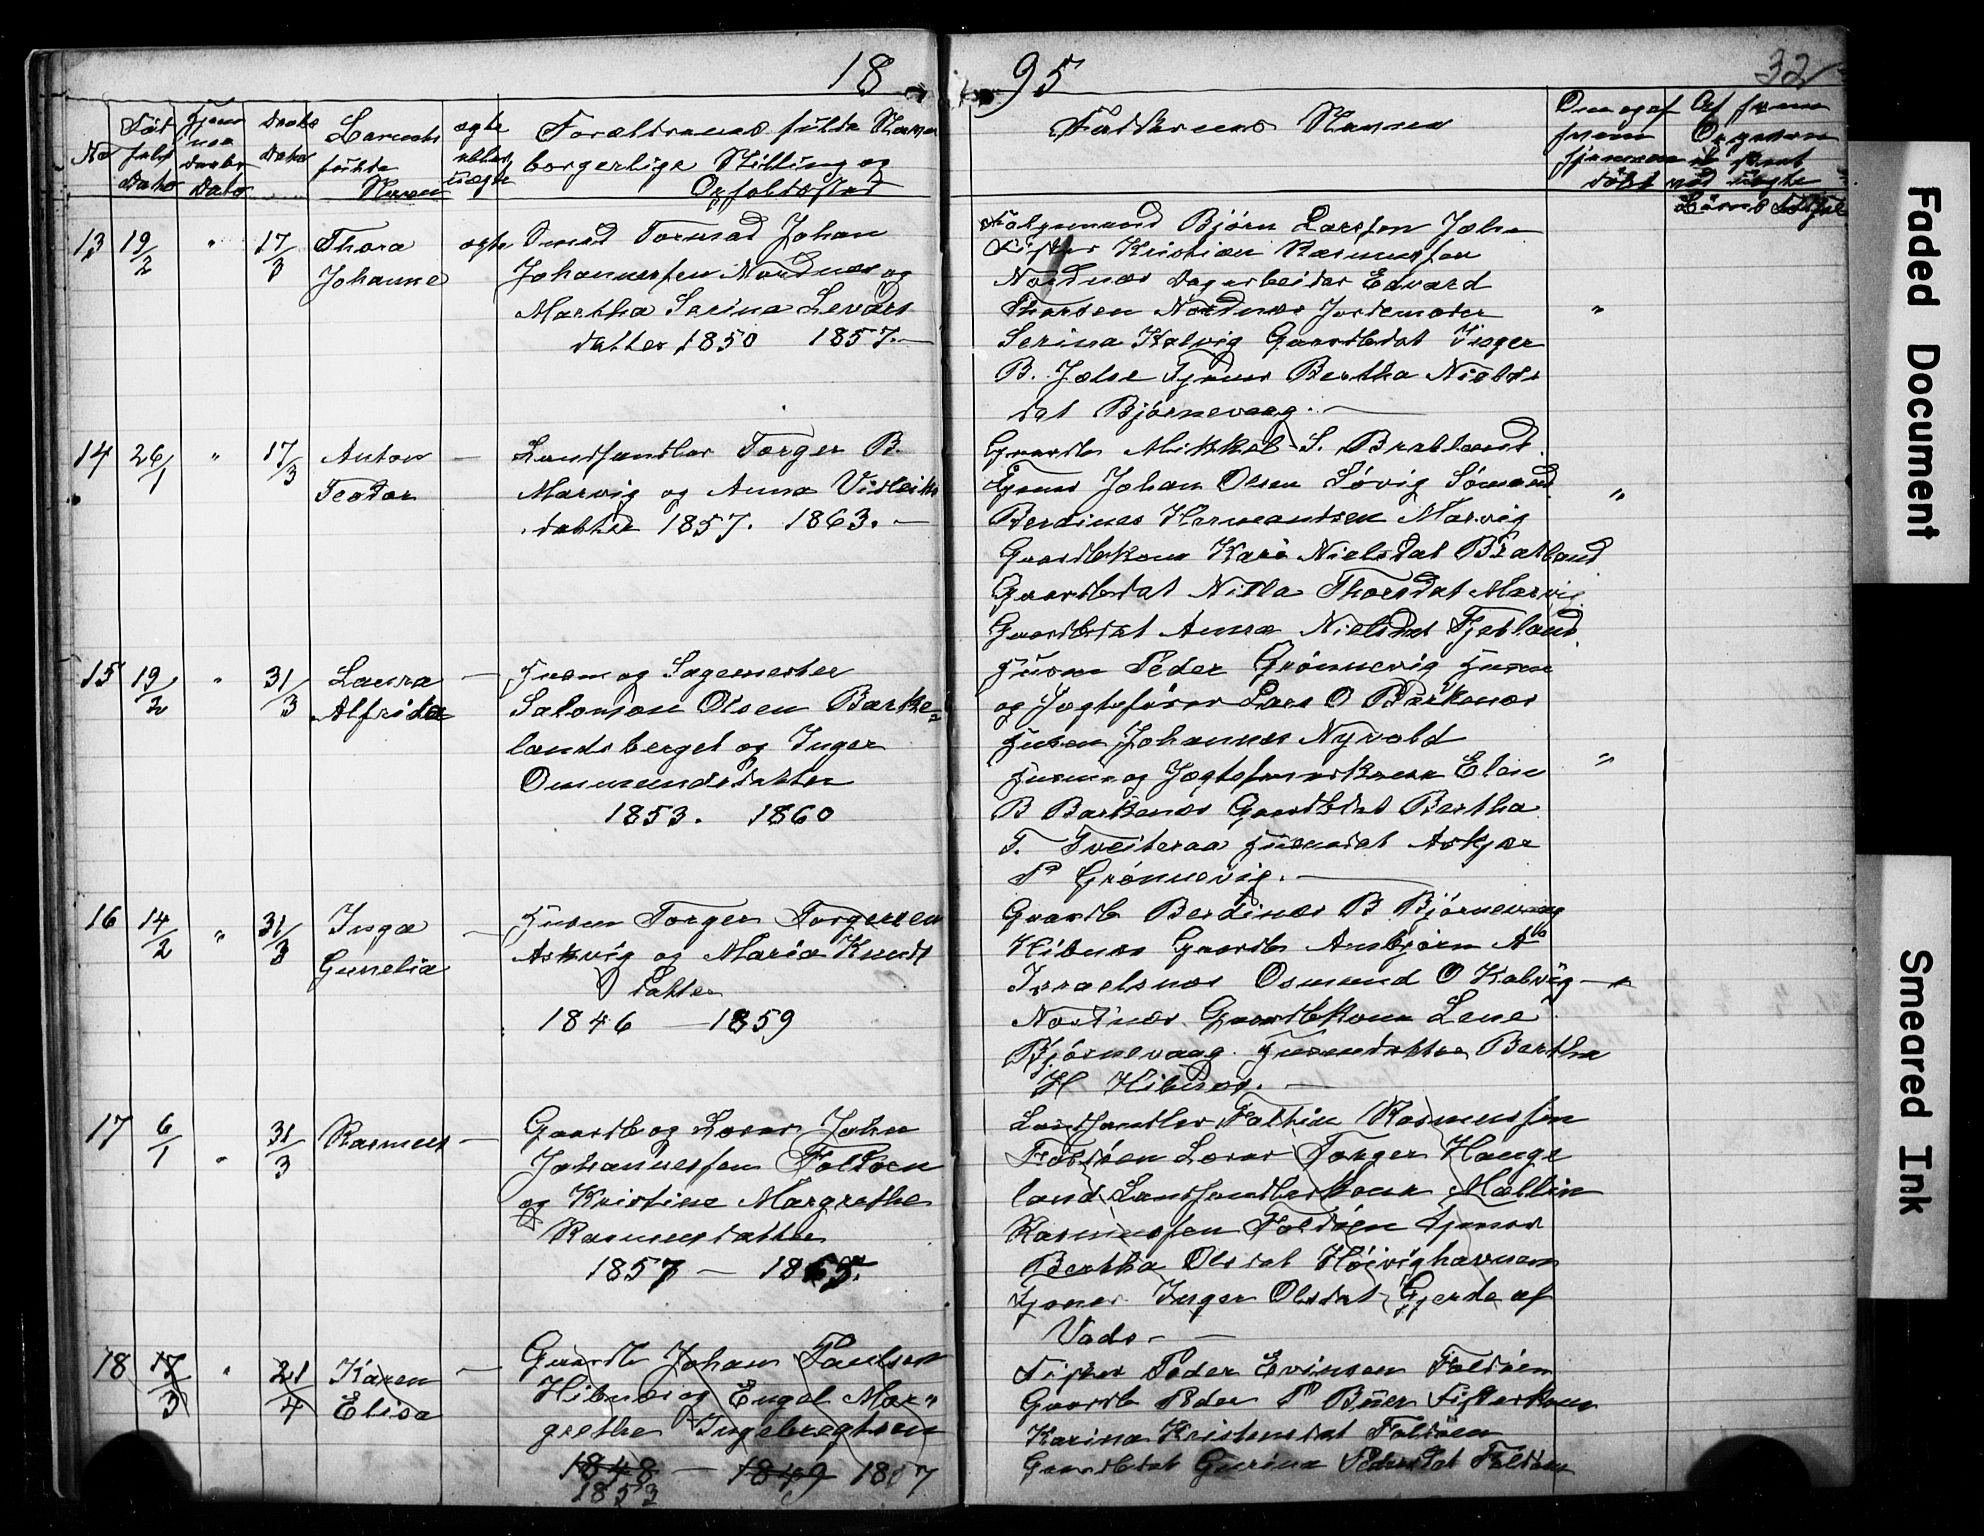 18 95
32
No
Født
Dato
Daabs
Dato
Barnets
fulde
Navn
ægte
eller
uægte
Forældrenes fulde Navn
borgerlige Stilling og
Opholdssted
Faddernes Navne
Om og af
hvem
hjemme
døbt
Af hvem
ved uægte
13 19/2 " 17/3 Thora
Johanne
ægte
Johan
Johannessen Nordnæs og
Martha Serina Sevärs
datter 1850 1857.
Bjørn Larssen Jælse
Kristian Rasmussen
Nordnæs Dagarbeider Edvard
Thorsen Nordnæs Jordemoder
Serina Kalvig Gaardbdat Inger
B. Jælse Tjener Bertha Niels
dat Bjørnevaag.
"
14 26/1 " 17/3 Anton
Teodor
Landhandler Torger B.
Marvig og Anna Vidleiks
datter 1857. 1863.
Gaardb Mikkel S. Bratland
Tjener Johan Olsen Søvig Sømand
Berdines Hermandsen Marvig
Gaardbkone Kari Nielsdat Bratland
Gaardbdat Nilla Thorsdat Marvig
Gaardbdat Anna Nielsdat Fjetland
"
15 19/2 " 31/3 Laura
Alfrida
Husm og Sagemester
Salomon Olsen Barke=
landsberget og Inger
Ommundsdatter
1853. 1860
Husm Peder Grønnevig Husm
og Jægtefører Lars O Barkenæs
Husm Johannes Nyvold
Husm og Elen
B Barkenæs Gaardbdat Bertha
T. Tveiteraa Husmdat Askjær
P Grønnevig.
"
16 14/2 " 31/3 Inga
Gunelia
Husm Torger Torgersen
Askvig og Maria Knuds
datter
1846 1859
Gaardb Berdines B Bjørnevaag
Hibnæs Gaardb Ansbjørn A
Israelsnæs Osmund O Kalvig
Nordnæs Gaardbkone Lene
Bjørnevaag Husmdatter Bertha
H Hibnæs.
17 6/1 " 31/3 Rasmus
Gaardb og Lærer John
Johannessen Foldøen
og Kristine Margrethe
Rasmusdatter
1857 — 1865.
Landhandler Rasmussen
Foldøen Lærer Torger Hauge
land Landhandlerkone Mallin
Rasmussen Foldøen Tjener
Bertha Olsdat Høivighavnen
Tjener Inger Olsdat Gjerde af
Vads
18 17/3 " 21/4 Karen
Elisa
Gaardb Johan Paulsen
Hibnæs og Engel Mar"
grethe Ingebregtsen
1848 — 1849 1857
1853
Fisker Peder Evinsen Foldøen
Gaardb Peder P Buer Fiskerkone
Karina Kristensdat Foldøen
Gaardbdat Gurina Pedersdat Foldøen
Faded Document
Smeared Ink